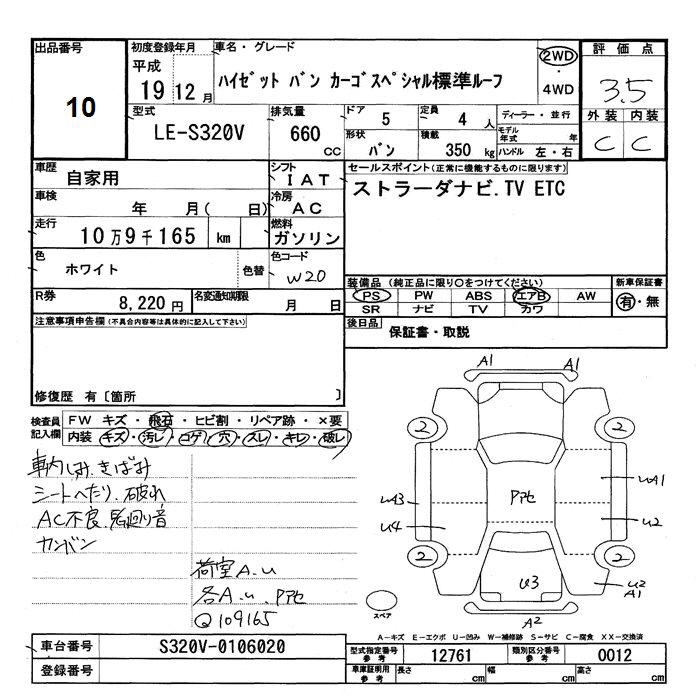 出品番号
10
初度登録年月
平成
19 12 月
車名・グレード
ハイゼット バン カーゴスペシャル標準ルーフ
2WD
・
4WD
評価点
3.5
外装 内装
C C
型式
LE-S320V
排気量
660
cc
ドア
5
定員
4 人
形状
バン
積載
350 kg
ディーラー・並行
モデル年式 年
ハンドル 左・右
車歴
自家用
シフト
IAT
車検
年 月( 日)
冷房
AC
走行
10万9千165 km
燃料
ガソリン
色
ホワイト
色替
色コード
W20
R券
8,220 円
名変通知期限
月 日
セールスポイント(正常に機能するものに限ります)
ストラーダナビ.TV ETC
装備品 (純正品に限り○をつけてください)
PS PW ABS エアB AW
SR ナビ TV カワ
新車保証書
有・無
後日品
保証書・取説
注意事項申告欄(不具合内容等は具体的に記入して下さい)
修復歴 有〔箇所 〕
検査員
記入欄
FW キズ・飛石・ヒビ割・リペア跡・×要
内装 キズ・汚レ・コゲ・穴・スレ・キレ・破レ
車内しみ.きばみ
シートへたり.破れ
AC不良.
カンバン
荷室A.u
各A.u.Pアセ
Q109165
A1 A1
2 2
uA3 uA1
u4 Pアセ u2
2 2
u3
u2
A1
スペア
A2
A-キズ E-エクボ U-凹み W-補修跡 S-サビ C-腐食 XX-交換済
車台番号
S320V-0106020
登録番号
型式指定番号
参考
12761
類別区分番号
参考
0012
車庫証明用
参考
長さ cm
幅 cm
高さ cm